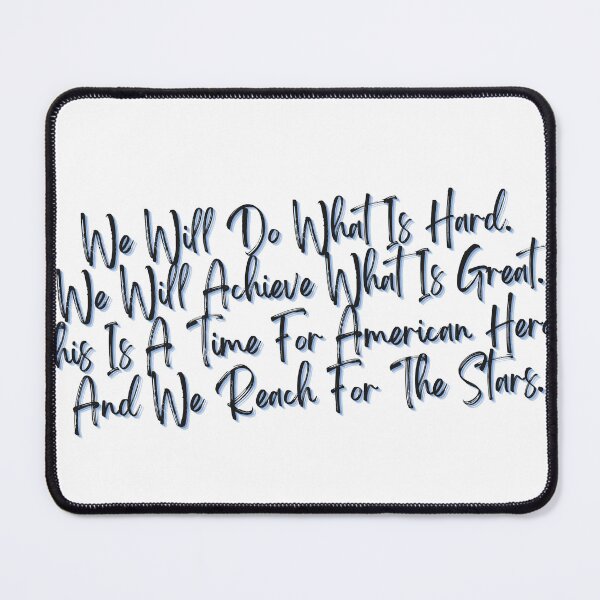 We Will Do What Is Hard.
We Will Achieve What Is Great.
his Is A Time For American Hero
And We Reach For The Stars.